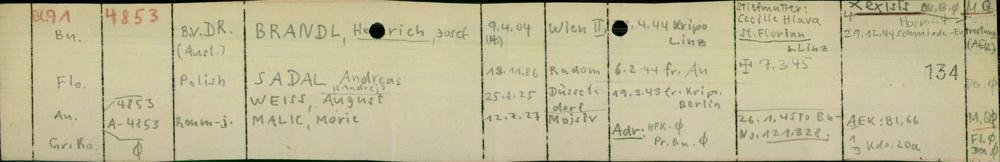 Bl.91 4853
Bu. B.V.DR. BRANDL, Josef 9.4.04 Wien II .4.44 Kripo Stiefmutter: 4 exists Bu.B.Φ M.Φ
(Aust.) (H.) Linz Cecille Hlava
St. Florian 29.12.44
b. Linz (AEK)
Flo. Polish SADAL, Andreas 18.11.86 Radom 6.2.44 fr. Au 7.3.45 134
(Andrej)
4853 WEISS, August 25.8.25 Düssel- 19.3.43 fr. Kripo.
dorf Berlin
Au. A-4853 MALIC, Marie 12.7.27 26.1.45 to Bu- AEK: Bl, 66 M.Φ
Gr.Ro. Φ Adr: HPK. Φ No. 121.328: 1 Kdo. 20a Fl.Φ
Pr.Bu. Φ 3 Da.Φ